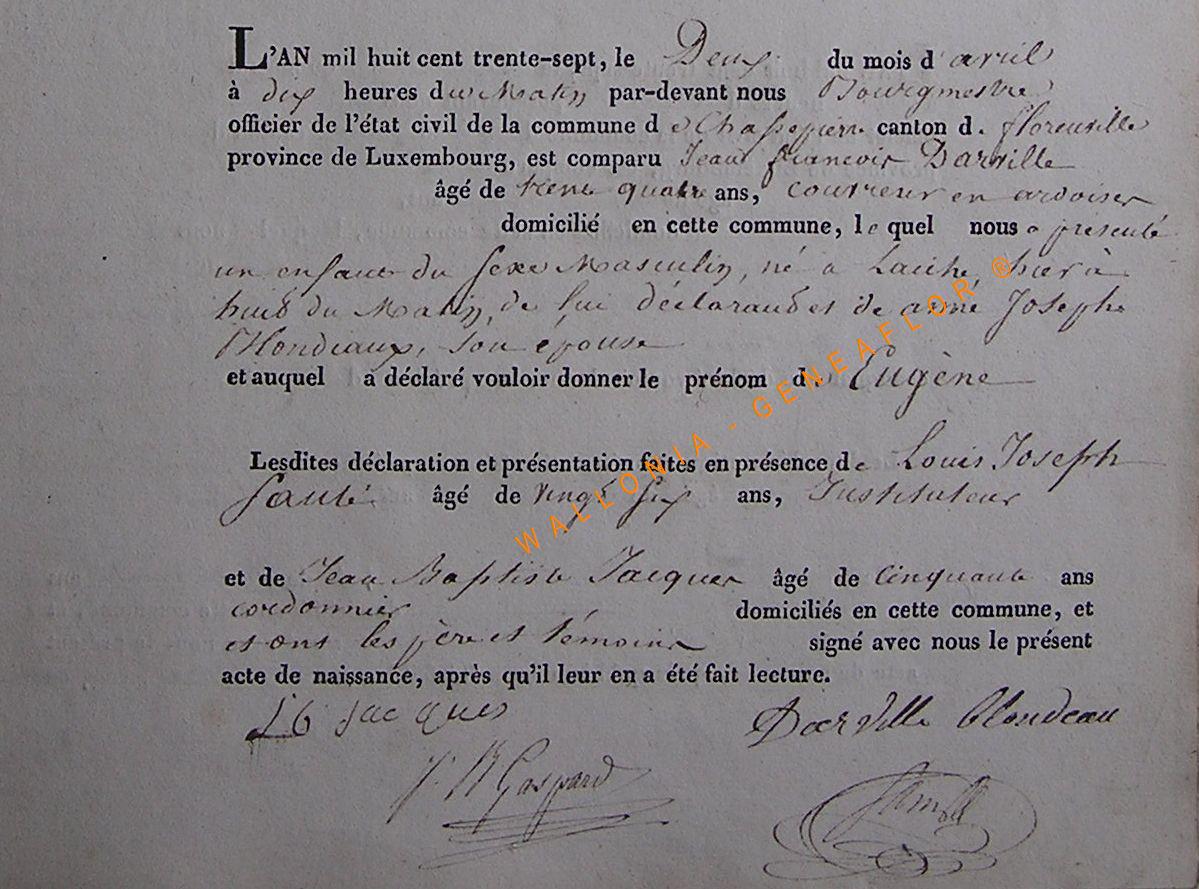 L'AN mil huit cent trente-sept, le Deux du mois d'avril
à dix heures du Matin par-devant nous Bourgmestre
officier de l'état civil de la commune de Chassepierre canton de florenville
province de Luxembourg, est comparu Jean françois Darville
âgé de trente quatre ans, couvreur en ardoises
domicilié en cette commune, le quel nous a présenté
un enfant du sexe Masculin, né a Laiche, hier à
huit du Matin, de lui déclarant et de anne Josephe
Blondiaux, son épouse
et auquel a déclaré vouloir donner le prénom de Eugène
Lesdites déclaration et présentation faites en présence de Louis Joseph
âgé de vingt six ans, Instituteur
et de Jean Baptiste Jacques âgé de Cinquante ans
cordonnier domiciliés en cette commune, et
et ont les père et témoins signé avec nous le présent
acte de naissance, après qu'il leur en a été fait lecture.
Jacques Darville blondeau
J B Gaspard
WALLONIA - GENEAFLOR ®